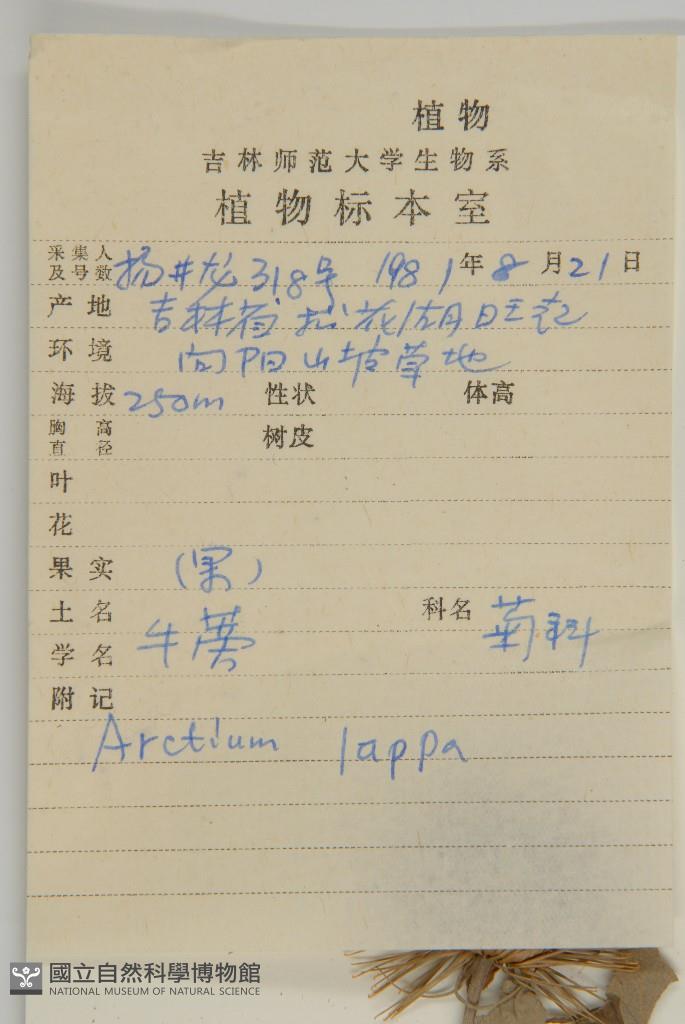 植物
吉林师范大学生物系
植物标本室
采集人及号数 扬井龙 318号 1981年8月21日
产地 吉林省松花湖旺起
环境 向阳山坡草地
海拔 250m 性状 体高
胸高直径 树皮
叶
花
果实 (果)
土名 牛蒡 科名 菊科
学名
附记
Arctium lappa
國立自然科學博物館
NATIONAL MUSEUM OF NATURAL SCIENCE